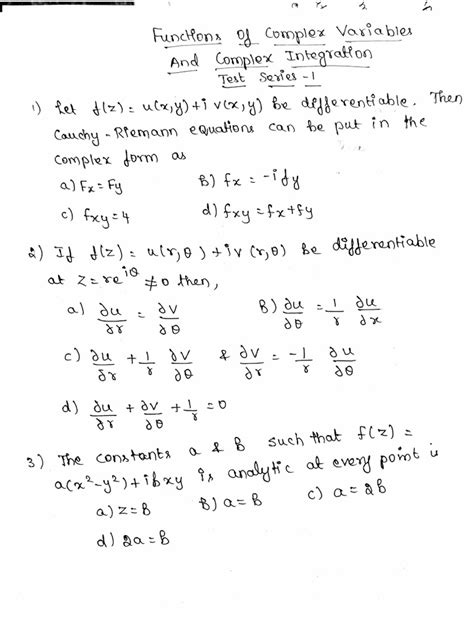 Functions Of Complex Variables
And Complex Integration
Test Series - 1
1) Let f(z) = u(x,y) + i v(x,y) be differentiable. Then
Cauchy - Riemann equations can be put in the
complex form as
a) Fx = Fy B) fx = -ify
c) fxy = 4 d) fxy = fx + fy
2) If f(z) = u(r,θ) + iv (r,θ) be differentiable
at z = re^iθ ≠ 0 then,
a) ∂u/∂r = ∂v/∂θ B) ∂u/∂θ = 1/r ∂u/∂x
c) ∂u/∂r + 1/r ∂v/∂θ & ∂v/∂r = -1/r ∂u/∂θ
d) ∂u/∂r + ∂v/∂θ + 1/r = 0
3) The constants a & B such that f(z) =
a(x²-y²) + ibxy is analytic at every point is
a) z = B B) a = B c) a = 2B
d) 2a = B